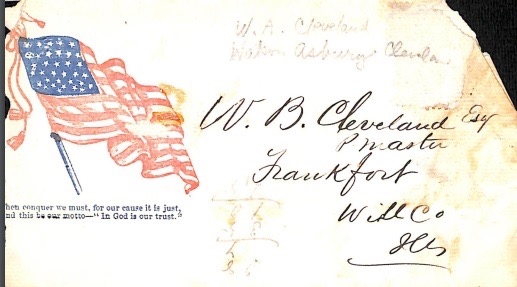 W. A. Cleveland
Asbury Cleveland
W. B. Cleveland Esq
P master
Frankfort
Will Co
Ills
hen conquer we must, for our cause it is just,
nd this be our motto—"In God is our trust."